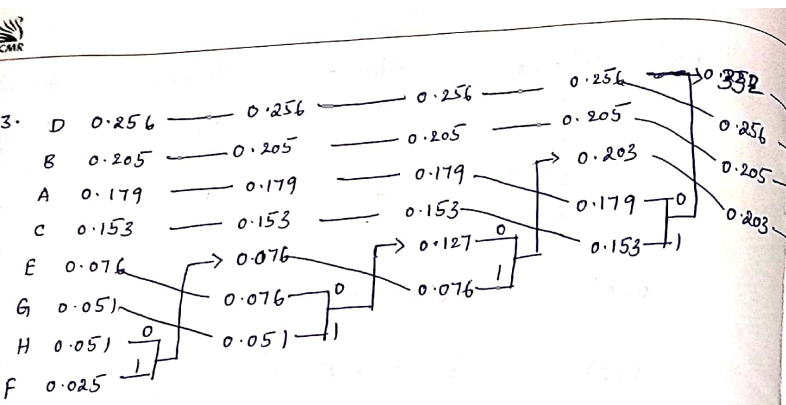 CMR
3. D 0.256 0.256 0.256 0.256 0.332
B 0.205 0.205 0.205 0.205 0.256
A 0.179 0.179 0.179 0.203 0.205
C 0.153 0.153 0.153 0.179 0 0.203
E 0.076 0.076 0.127 0 0.153 1
G 0.051 0.076 0 0.076 1
H 0.051 0 0.051 1
F 0.025 1